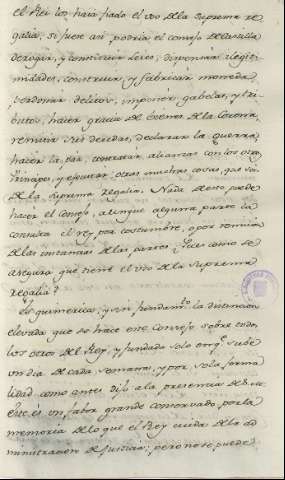 el Rei los haia fiado el uso de la Suprema re
galia, si fuese asi, podria el consejo de Castilla
derogar, y constituir leies, dispensar ilegiti
midades, construir, y fabricar moneda,
perdonar delitos, imponer gabelas, y tri
butos, hacer gracia de bienes de la Corona,
remitir sus deudas, declarar la guerra,
hacer la paz, contratar alianzas con los otros
Principes, y executar otras muchas cosas, que son
de la Suprema Regalia. Nada de esto puede
hacer el Consejo, aunque alguna parte la
consulta el Rey por costumbre, o por remision
de las instancias de las partes. ¿Pues como se
asegura que tiene el uso de la Suprema
regalia?
Es quimerica, y sin fundamto. la distincion
elevada que se hace este Consejo sobre todos
los otros del Rey, y fundada solo en que sube
un dia de cada semana, y por sola forma
lidad como antes dije a la presencia de
este es un grande conservado por la
memoria de lo que el Rey cuida de la ad
ministracion de Justicia; pero no se puede